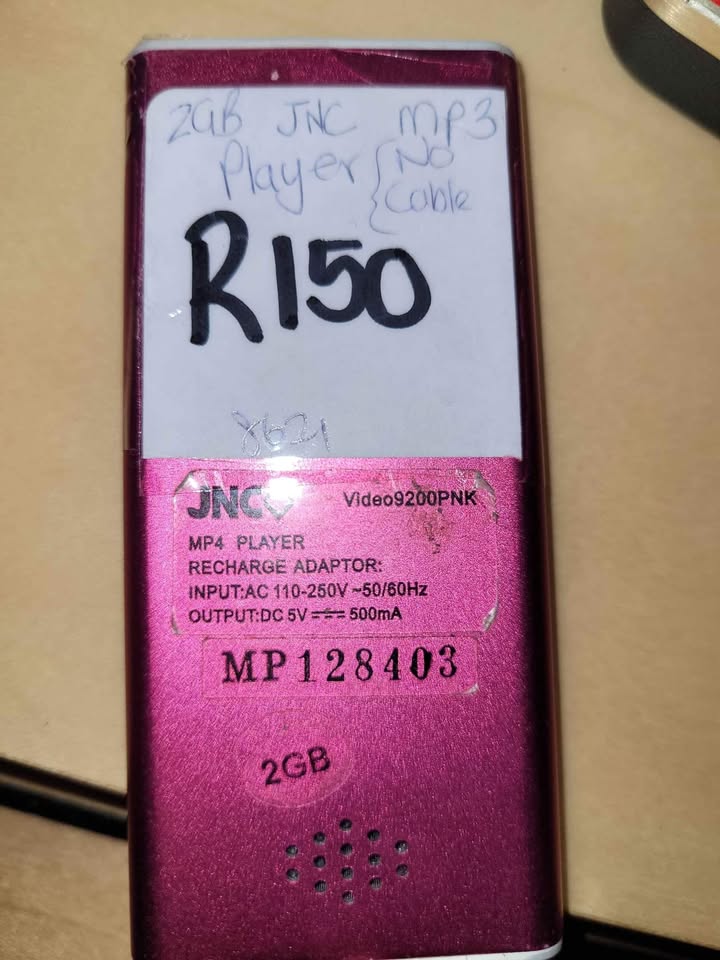 2GB JNC MP3
Player { No
Cable
R150
8621
JNC Video9200PNK
MP4 PLAYER
RECHARGE ADAPTOR:
INPUT:AC 110-250V ~50/60Hz
OUTPUT:DC 5V 500mA
MP128403
2GB